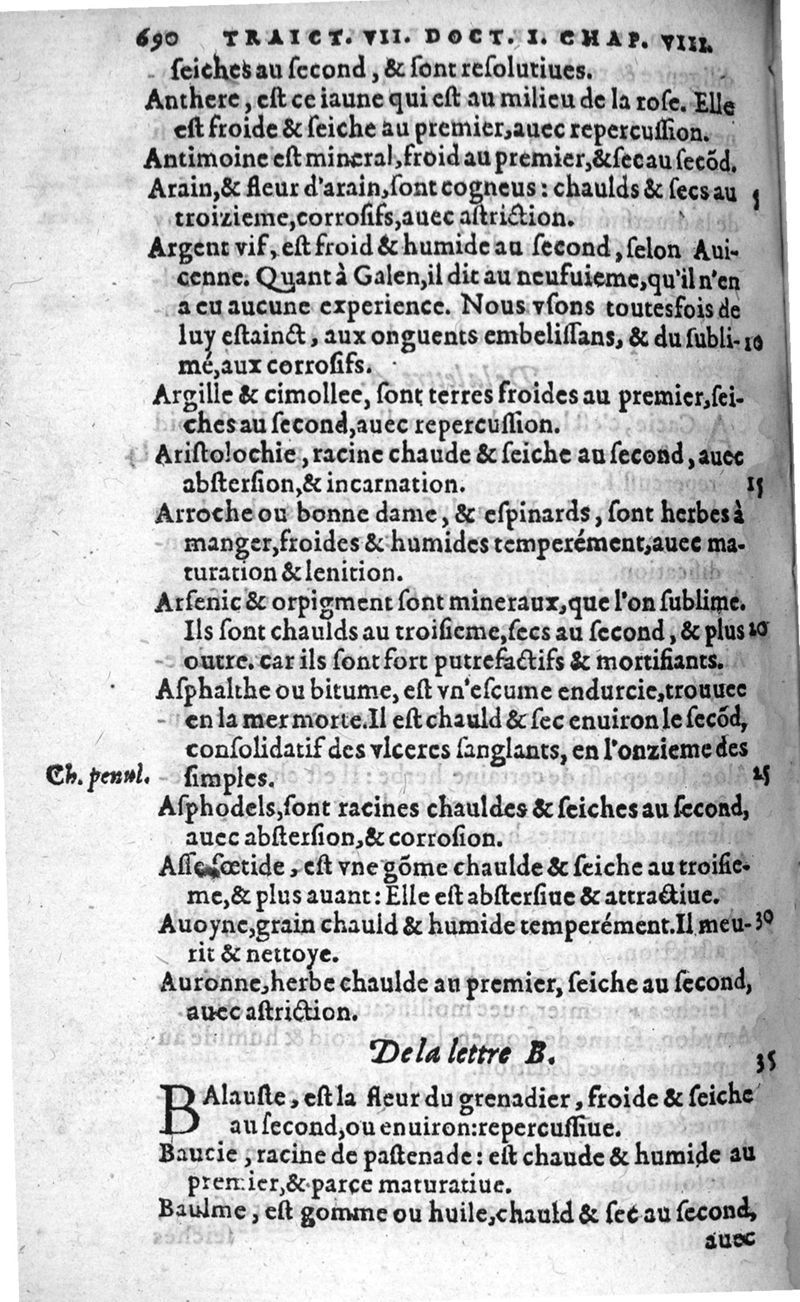 690 TRAICT. VII. DOCT. I. CHAP. VIII.
ſeiches au ſecond, & ſont reſolutiues.
Anthere, eſt ce iaune qui eſt au milieu de la roſe. Elle
eſt froide & ſeiche au premier, auec repercuſſion.
Antimoine eſt mineral, froid au premier, & ſec au ſecõd.
Arain, & fleur d'arain, ſont cogneus: chaulds & ſecs au 5
troizieme, corroſifs, auec aſtriction.
Argent vif, eſt froid & humide au ſecond, ſelon Aui-
cenne. Quant à Galen, il dit au neufuieme, qu'il n'en
a eu aucune experience. Nous vſons toutesfois de
luy eſtainct, aux onguents embeliſſans, & du ſubli- 10
mé, aux corroſifs.
Argille & cimollee, ſont terres froides au premier, ſei-
ches au ſecond, auec repercuſſion.
Ariſtolochie, racine chaude & ſeiche au ſecond, auec
abſterſion, & incarnation. 15
Arroche ou bonne dame, & eſpinards, ſont herbes à
manger, froides & humides temperément, auec ma-
turation & lenition.
Arſenic & orpigment ſont mineraux, que l'on ſublime.
Ils ſont chaulds au troiſieme, ſecs au ſecond, & plus 20
outre. car ils ſont fort putrefactifs & mortifiants.
Aſphalthe ou bitume, eſt vn'eſcume endurcie, trouuee
en la mer morte. Il eſt chauld & ſec enuiron le ſecõd,
conſolidatif des vlceres ſanglants, en l'onzieme des
Ch. penul. ſimples. 25
Aſphodels, ſont racines chauldes & ſeiches au ſecond,
auec abſterſion, & corroſion.
Aſſe fœtide, eſt vne gõme chaulde & ſeiche au troiſie-
me, & plus auant: Elle eſt abſterſiue & attractiue.
Auoyne, grain chauld & humide temperément. Il meu- 30
rit & nettoye.
Auronne, herbe chaulde au premier, ſeiche au ſecond,
auec aſtriction.
De la lettre B. 35
BAlauſte, eſt la fleur du grenadier, froide & ſeiche
au ſecond, ou enuiron: repercuſſiue.
Baucie, racine de paſtenade: eſt chaude & humide au
premier, & parce maturatiue.
Baulme, eſt gomme ou huile, chauld & ſec au ſecond,
auec